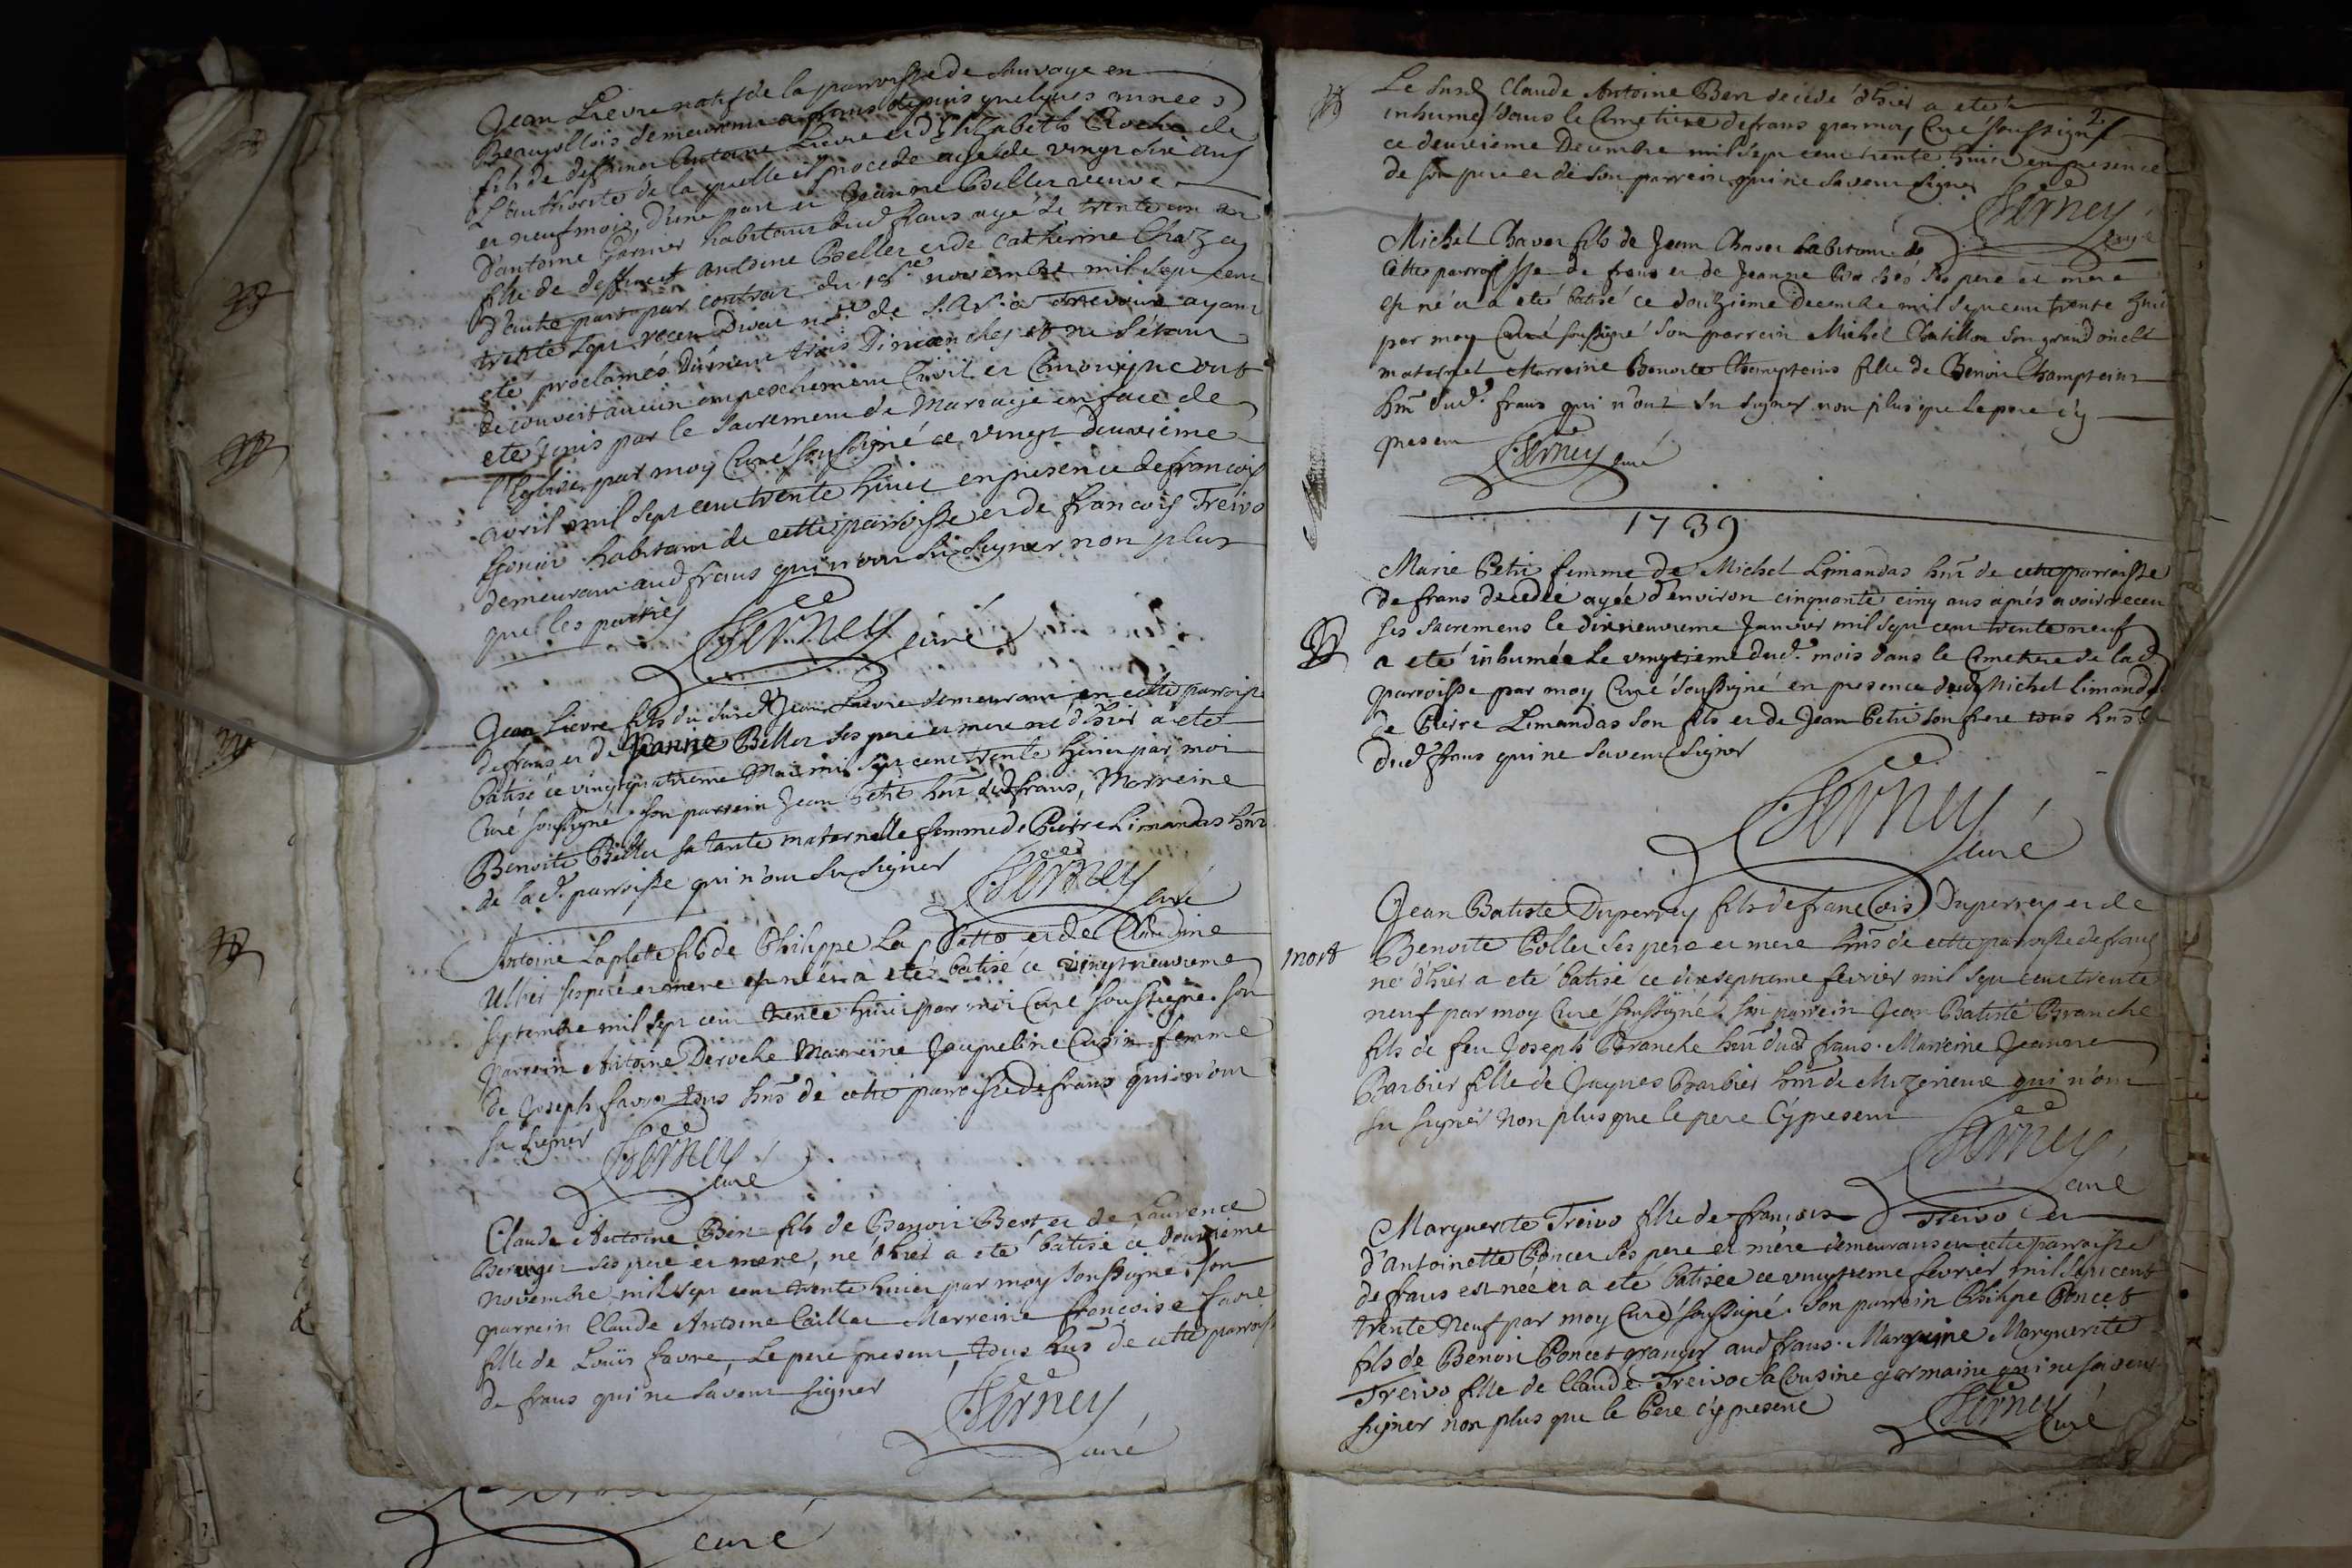 Jean Lievre natif de la parroisse de Sauvage en
Beaujollois demeurant a frans depuis quelques années
fils de deffunct Antoine Lievre et d'Elizabeth Roche de
L'authorité de laquelle il procede agé de vingt six ans
et neuf mois, d'une part et Jeanne Beller veuve
d'antoine Garnier habitant dud frans agé de trente un an
fille de deffunct antoine Beller et de Catherine
d'autre part par contrat du 18e novembre mil sept cent
trente sept receu not. de a Trevoux ayant
eté proclamés Dument trois Dimanches et ne s'étant
découvert aucun empeschement Civil et Canonique ont
eté unis par le Sacrement de Mariage en face de
l'Eglise par moy Curé soussigné ce vingt deuxième
avril mil sept cent trente huict en presence de françois
habitant de cette parroisse et de françois Treivo
demeurant aud frans qui n'ont su signer non plus
que les parties
Perney curé
Jean Lievre fils du sured Jean Lievre demeurant en cette parroisse
de frans et de Jeanne Beller ses pere et mere né d'hier a eté
batisé ce vingtquatrieme Mai mil sept cent trente huict par moi
Curé soussigné son parrein Jean Petit hnt dud frans, Marreine
Benoite Beller sa tante maternelle femme de Pierre Limandas hnt
de lad. parroisse qui n'ont su signer
Perney curé
Antoine Laplatte fils de Philippe La Platte et de Claudine
ses pere et mere est né et a eté batisé ce vingt neuvieme
septembre mil sept cent trente huict par moi Curé soussigné. son
parrein Antoine Deroche Marreine Jacqueline Cusin femme
de Joseph favre tous hns de cette parroisse de frans qui n'ont
su signer
Perney curé
Claude Antoine Ben fils de Benoit Ben et de Laurence
ses pere et mere, né d'hier a eté batisé ce douzième
novembre mil sept cent trente huict par moy soussigné. son
parrein Claude Antoine Marreine françoise favre
fille de Louis favre, Le pere present, tous hns de cette parroisse
de frans qui ne savent signer
Perney curé
curé
2
Le sured Claude Antoine Ben decédé d'hier a eté
inhumé dans le Cimetiere de frans par moy Curé soussigné
ce deuxieme Decembre mil sept cent trente huict en presence
de son pere et de son parrein qui ne savent signer
Perney curé
Michel Chavor fils de Jean Chavor habitant de
cette parroisse de frans et de Jeanne ses pere et mere
est né et a eté batisé ce douzieme decembre mil sept cent trente huict
par moy Curé soussigné son parrein Michel Chatillon son grand oncle
maternel Marreine Benoite Champteins fille de Benoit Champteins
hnt dud. frans qui n'ont su signer non plus que le pere c'y
present
Perney curé
1739
Marie Petit femme de Michel Limandas hnt de cette parroisse
de frans decedée agée d'environ cinquante cinq ans après avoir receu
ses sacremens le dixneuvieme Janvier mil sept cent trente neuf
a eté inhumée le vingtieme dud. mois dans le Cimetiere de lad.
parroisse par moy Curé soussigné en presence dud Michel Limandas
de Pierre Limandas son fils et de Jean Petit son frere tous hns
dud frans qui ne savent signer
Perney curé
mort
Jean Batiste Duperrey fils de francois Duperrey et de
Benoite Beller ses pere et mere hns de cette parroisse de frans
né d'hier a eté batisé ce dixseptieme fevrier mil sept cent trente
neuf par moy Curé soussigné. son parrein Jean Batiste Branche
fils de feu Joseph Branche hnt dud frans. Marreine Jeanne
Barbier fille de Jaques Barbier hnt de Mizerieux qui n'ont
su signer non plus que le pere Cy present
Perney curé
Marguerite Treivo fille de françois Treivo et
d'Antoinette Poncet ses pere et mere demeurans en cette parroisse
de frans est née et a eté batisée ce vingtieme fevrier mil sept cent
trente neuf par moy Curé soussigné. Son parrein Philipe Poncet
fils de Benoit Poncet granger aud frans. Marreine Marguerite
Treivo fille de Claude Treivo sa Cousine germaine qui ne savent
signer non plus que le Pere c'y present
Perney Curé